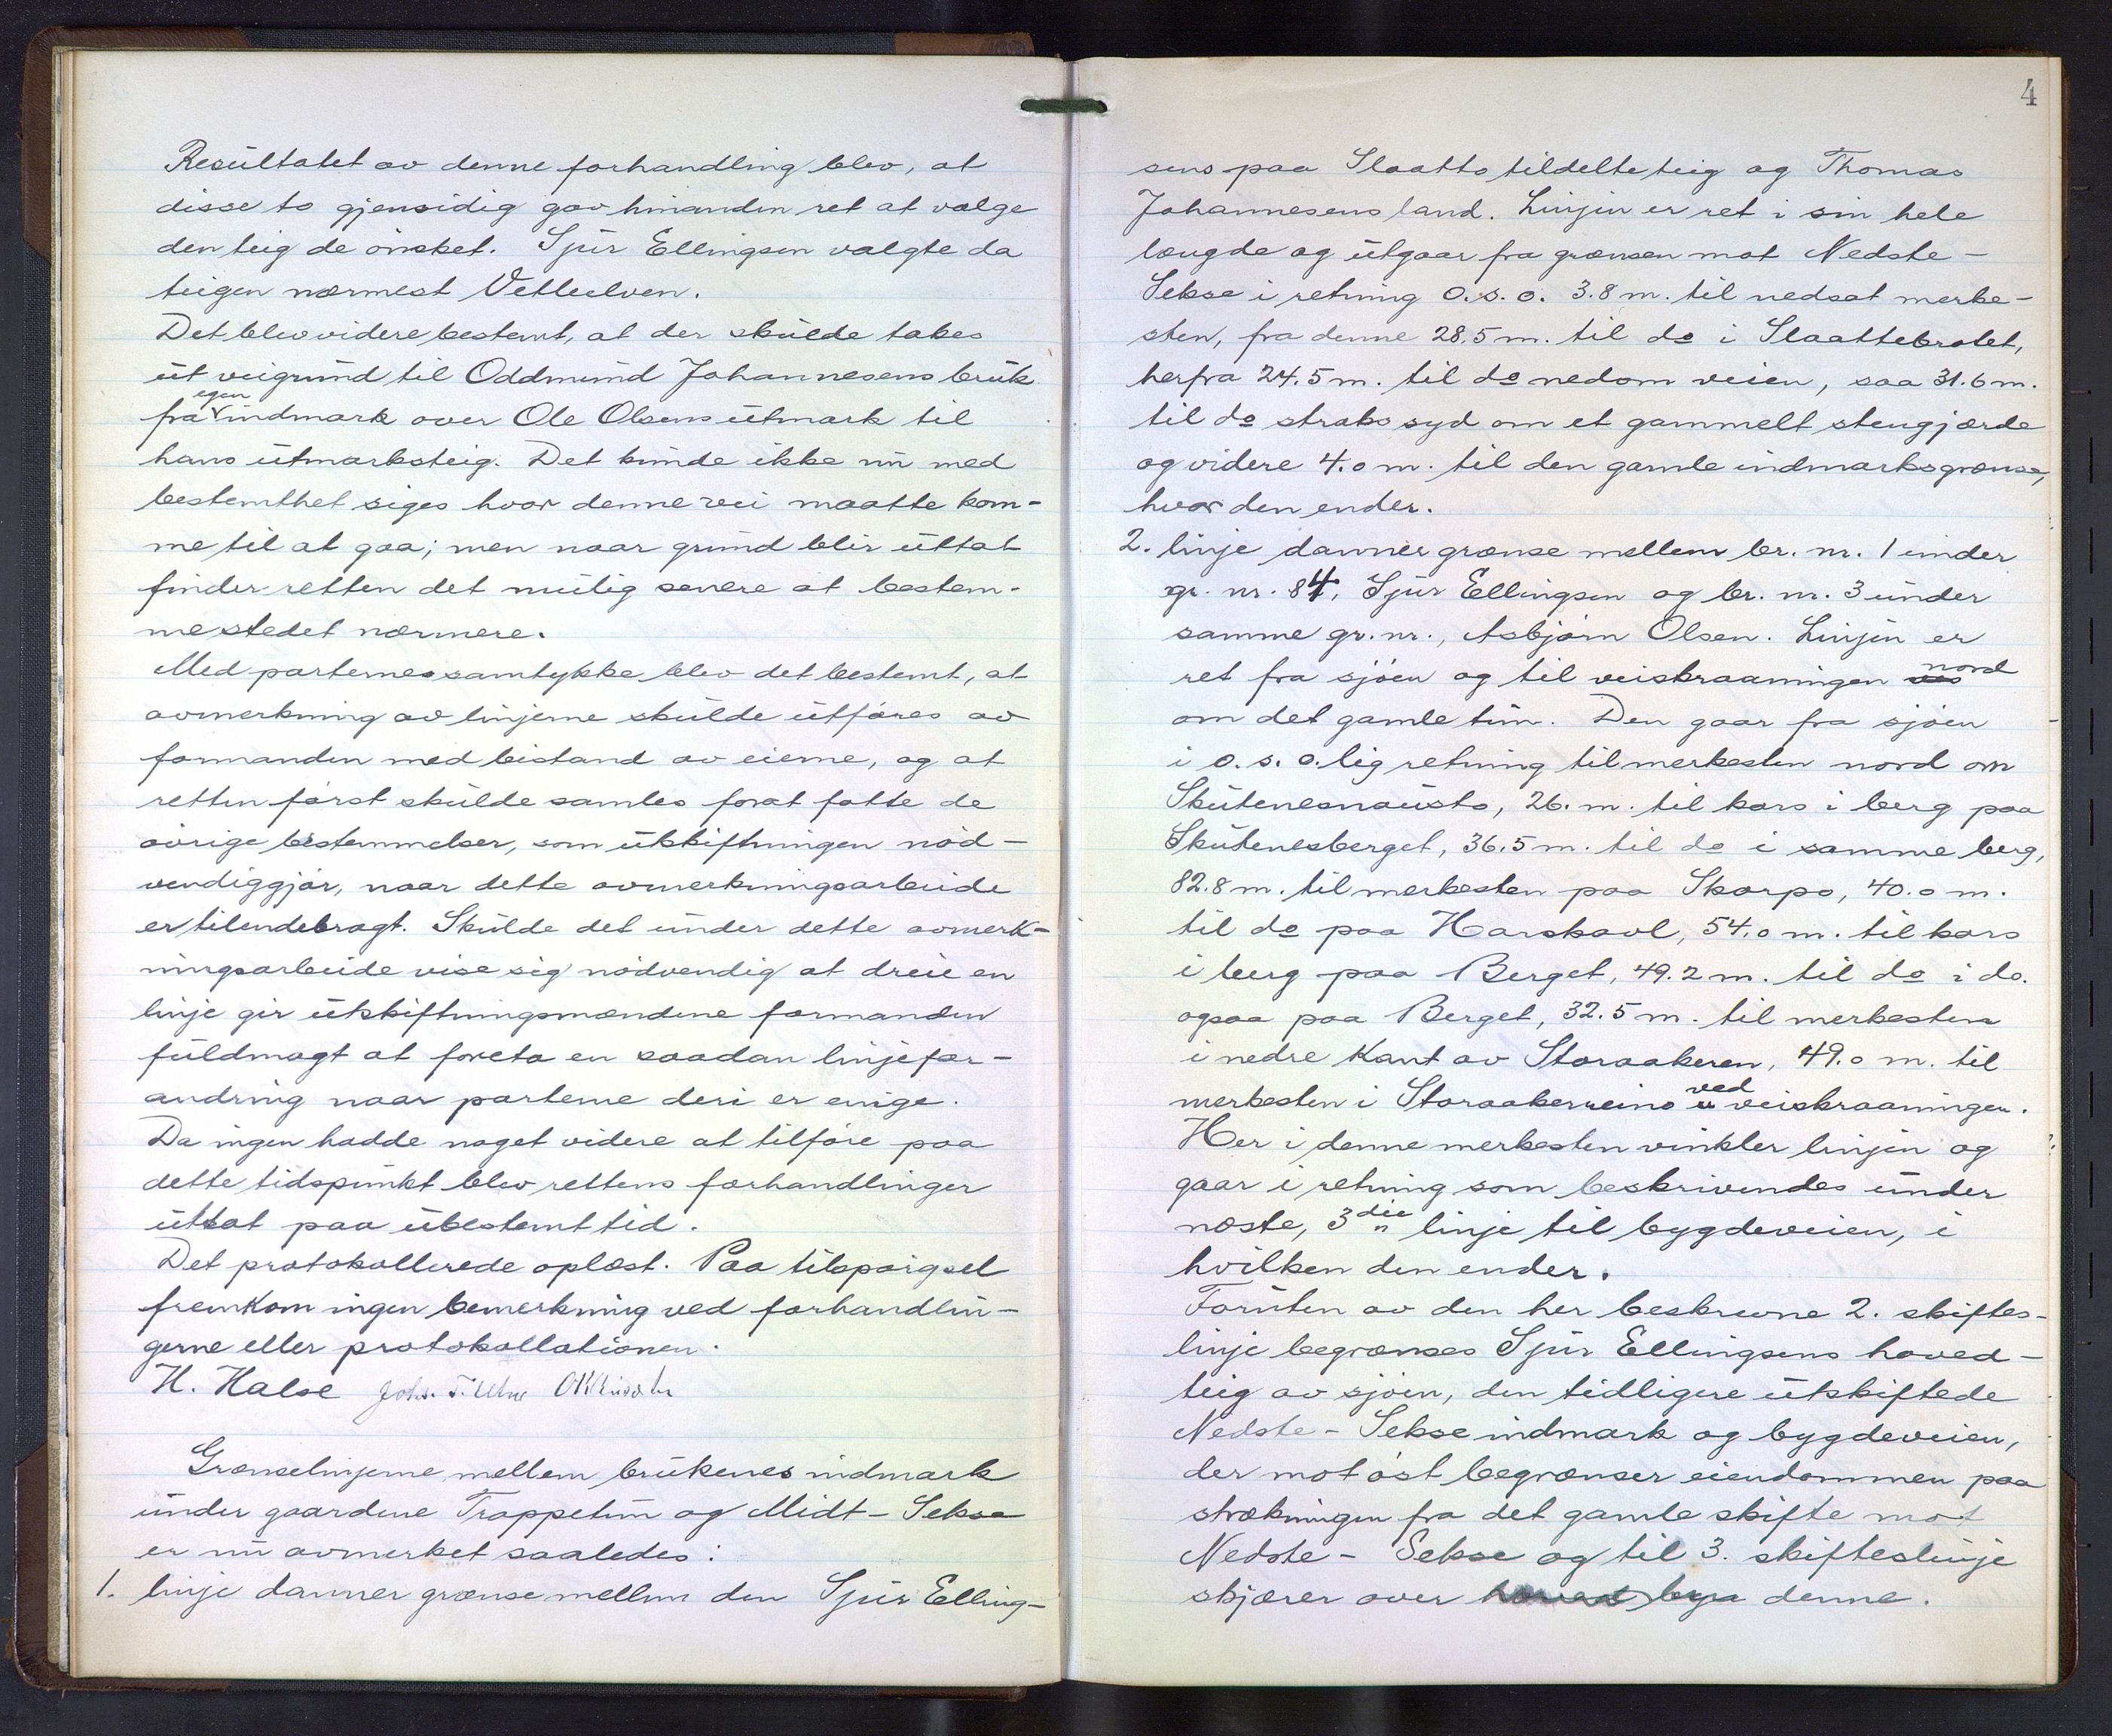 Resultatet av denne forhandling blev, at
disse to gjensidig gav hinanden ret at vælge
den teig de ønsket. Sjur Ellingsen valgte da
teigen nærmest Vetleelven.
Det blev videre bestemt, at der skulde takes
ut veigrund til Oddmund Johannesens bruk
fra egen indmark over Ole Olsens utmark til
hans utmarksteig. Det kunde ikke nu med
bestemthet siges hvor denne vei maatte kom-
me til at gaa; men naar grund blir uttat
finder retten det mulig senere at bestem-
me stedet nærmere.
Med parternes samtykke blev det bestemt, at
avmerkning av linjerne skulde utføres av
formanden med bistand av eierne, og at
retten først skulde samles forat fatte de
øvrige bestemmelser, som utskiftningen nød-
vendiggjør, naar dette avmerkningsarbeide
er tilendebragt. Skulde det under dette avmerk-
ningsarbeide vise sig nødvendig at dreie en
linje gir utskiftningsmændene formanden
fuldmagt at foreta en saadan linjefor-
andring naar parterne deri er enige.
Da ingen hadde noget videre at tilføre paa
dette tidspunkt blev rettens forhandlinger
utsat paa ubestemt tid.
Det protokollerede oplæst. Paa tilspørgsel
fremkom ingen bemerkning ved forhandlin-
gerne eller protokollationen.
H. Halse Johs. T.
Grænselinjerne mellem brukenes indmark
under gaardene Trappetun og Midt-Sekse
er nu avmerket saaledes:
1. linje danner grænse mellem den Sjur Elling-
4
sens paa Slaatto tildelte teig og Thomas
Johannesens land. Linjen er ret i sin hele
længde og utgaar fra grænsen mot Nedste-
Sekse i retning o.s.o. 3.8 m. til nedsat merke-
sten, fra denne 28.5 m. til do i Slaattebrotet,
herfra 24.5 m. til do nedom veien, saa 31.6 m.
til do straks syd om et gammelt stengjærde
og videre 4.0 m. til den gamle indmarksgrænse,
hvor den ender.
2. linje danner grænse mellem br. nr. 1 under
gr. nr. 84, Sjur Ellingsen og br. nr. 3 under
samme gr. nr., Asbjørn Olsen. Linjen er
ret fra sjøen og til veiskraaningen nord
om det gamle tun. Den gaar fra sjøen
i o. s. o. lig retning til merkesten nord om
Skutenesnausto, 26. m. til kors i berg paa
Skutenesberget, 36.5 m. til do i samme berg,
82.8 m. til merkesten paa Skarpo, 40.0 m.
til do paa Harskavl, 54.0 m. til kors
i berg paa Berget, 49.2 m. til do i do.
ogsaa paa Berget, 32.5 m. til merkesten
i nedre kant av Storaakeren, 49.0 m. til
merkesten i Storaakerreino ved veiskraaningen.
Her i denne merkesten vinkler linjen og
gaar i retning som beskrivendes under
næste, 3die linje til bygdeveien, i
hvilken den ender.
Foruten av den her beskrevne 2. skiftes-
linje begrænses Sjur Ellingsens hoved-
teig av sjøen, den tidligere utskiftede
Nedste-Sekse indmark og bygdeveien,
der mot øst begrænser eiendommen paa
strækningen fra det gamle skifte mot
Nedste-Sekse og til 3. skifteslinje
skjærer over denne.